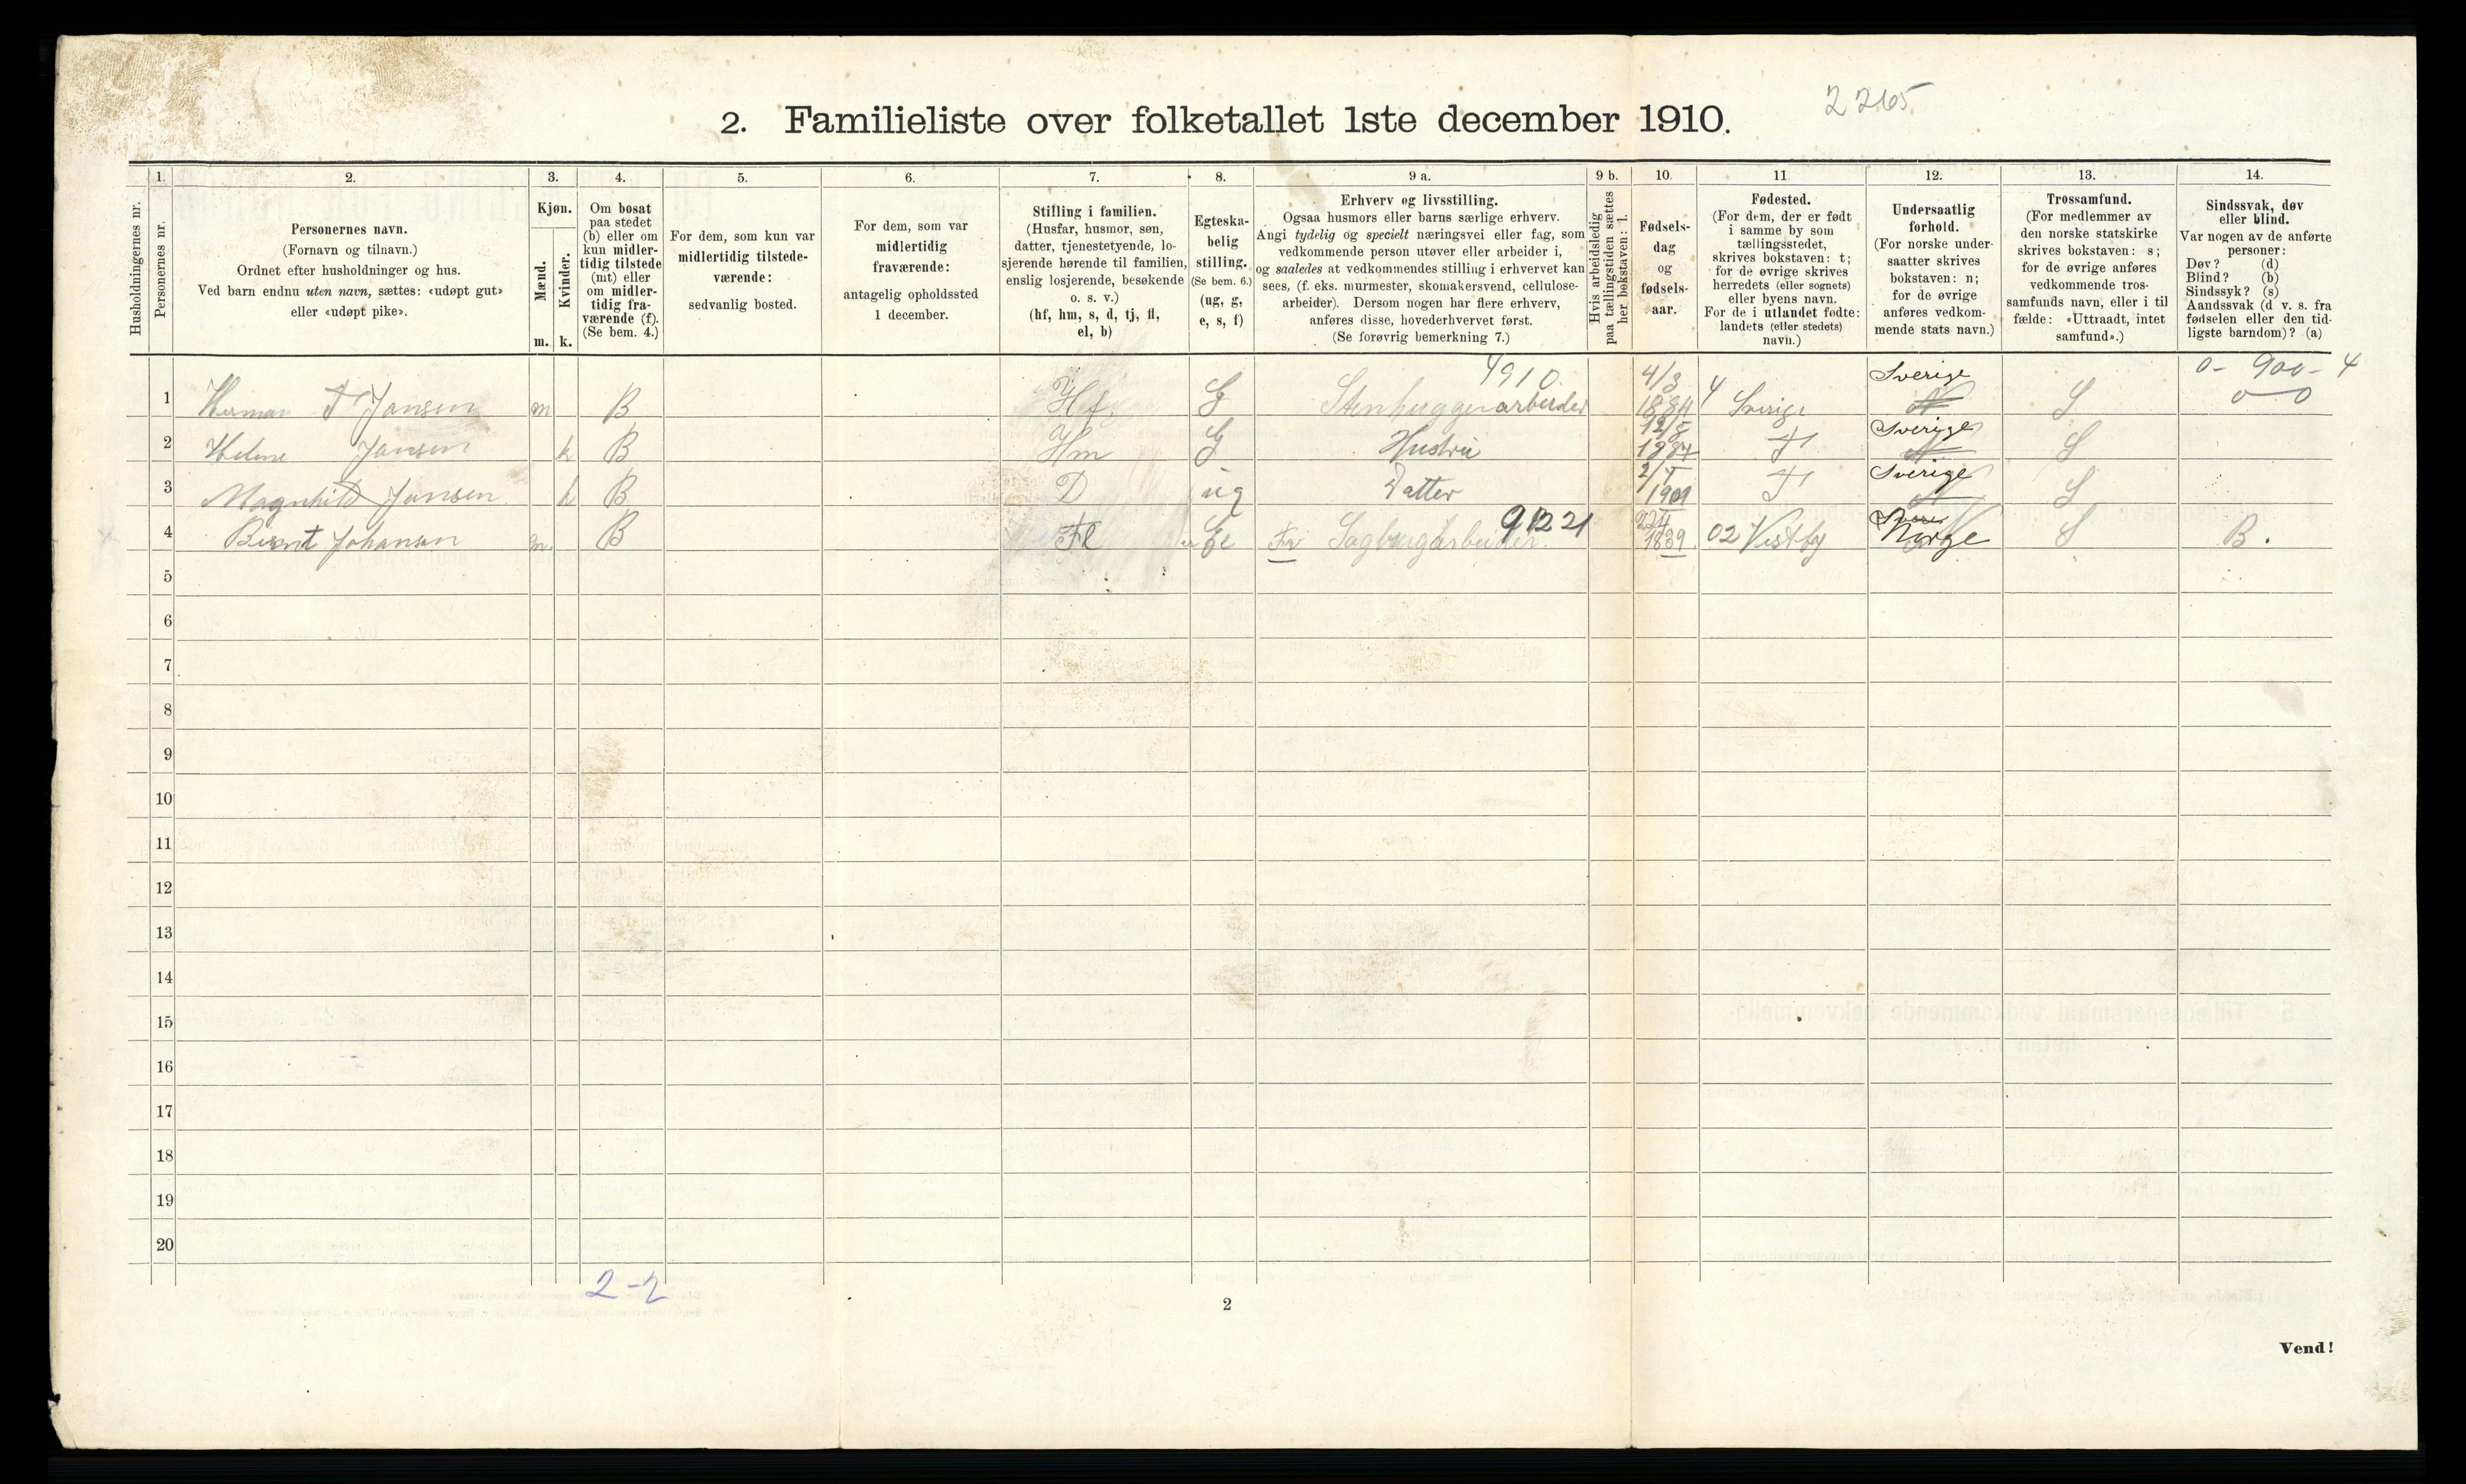 2265
2. Familieliste over folketallet 1ste december 1910.
1. 2. 3. 4. 5. 6. 7. 8. 9 a. 9 b. 10. 11. 12. 13. 14.
Husholdningernes nr.
Personernes nr.
Personernes navn.
(Fornavn og tilnavn.)
Ordnet efter husholdninger og hus.
Ved barn endnu uten navn, sættes: «udøpt gut»
eller «udøpt pike».
Kjøn.
Mænd.
Kvinder.
m. k.
Om bosat
paa stedet
(b) eller om
kun midler-
tidig tilstede
(mt) eller
om midler-
tidig fra-
værende (f).
(Se bem. 4.)
For dem, som kun var
midlertidig tilstede-
værende:
sedvanlig bosted.
For dem, som var
midlertidig
fraværende:
antagelig opholdssted
1 december.
Stilling i familien.
(Husfar, husmor, søn,
datter, tjenestetyende, lo-
sjerende hørende til familien,
enslig losjerende, besøkende
o. s. v.)
(hf, hm, s, d, tj, fl,
el, b)
Egteska-
belig
stilling.
(Se bem. 6.)
(ug, g,
e, s, f)
Erhverv og livsstilling.
Ogsaa husmors eller barns særlige erhverv.
Angi tydelig og specielt næringsvei eller fag, som
vedkommende person utøver eller arbeider i,
og saaledes at vedkommendes stilling i erhvervet kan
sees, (f. eks. murmester, skomakersvend, cellulose-
arbeider). Dersom nogen har flere erhverv,
anføres disse, hovederhvervet først.
(Se forøvrig bemerkning 7.)
Hvis arbeidsledig
paa tællingstiden sættes
her bokstaven: l.
Fødsels-
dag
og
fødsels-
aar.
Fødested.
(For dem, der er født
i samme by som
tællingsstedet,
skrives bokstaven: t;
for de øvrige skrives
herredets (eller sognets)
eller byens navn.
For de i utlandet fødte:
landets (eller stedets)
navn.)
Undersaatlig
forhold.
(For norske under-
saatter skrives
bokstaven: n;
for de øvrige
anføres vedkom-
mende stats navn.)
Trossamfund.
(For medlemmer av
den norske statskirke
skrives bokstaven: s;
for de øvrige anføres
vedkommende tros-
samfunds navn, eller i til
fælde: «Uttraadt, intet
samfund».)
Sindssvak, døv
eller blind.
Var nogen av de anførte
personer:
Døv? (d)
Blind? (b)
Sindssyk? (s)
Aandssvak (d v. s. fra
fødselen eller den tid-
ligste barndom)? (a)
4910 4/3 Sverige 0 - 900 - 4
1 Herman F Jansen m B Hf G Stenhuggerarbeider 1884 4 Sverige N S 0 0
12/5 Sverige
2 Helene Jansen k B Hm G Hustru 1887 T N S
2/5 Sverige
3 Magnhild Jansen k B D ug Datter 1909 T N S
91221
4 Bernt Johansen m. B Fl Fv Sagbrugarbeider. 1839 02 Vestby Norge S B.
5
6
7
8
9
10
11
12
13
14
15
16
17
18
19
20
2-2
2
Vend!